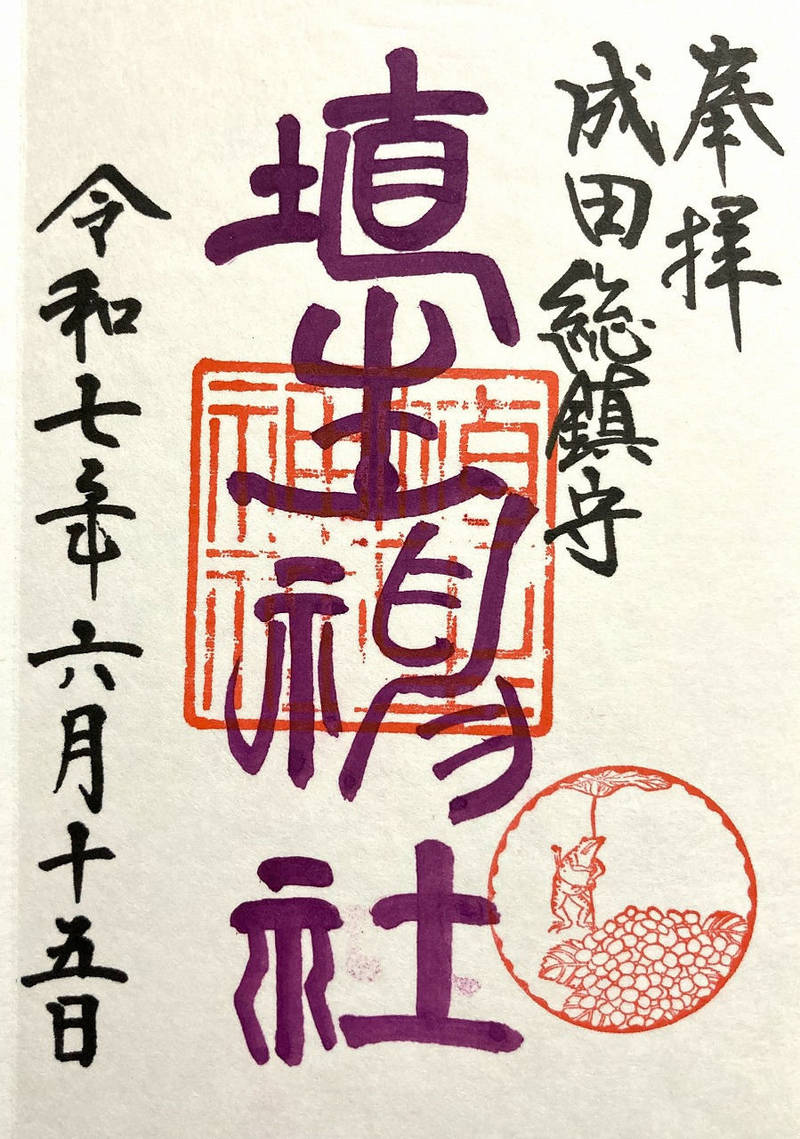 奉拝
成田総鎮守
埴生神社
令和七年六月十五日